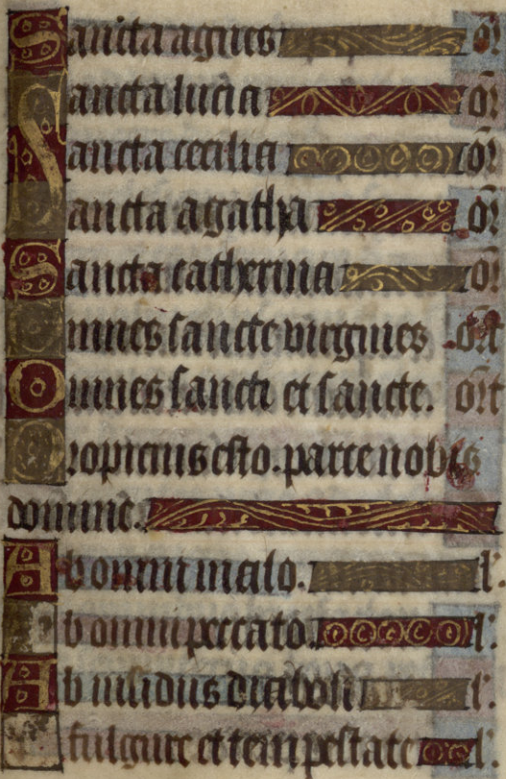 Sancta agnes or
Sancta lucia or
Sancta cecilia or
Sancta agatha or
Sancta catherina or
Omnes sancte virgines ort
Omnes sancti et sancte. ort
Propicius esto. parce nobis
domine.
Ab omni malo. l:
Ab omni peccato l:
Ab insidiis diaboli l:
A fulgure et tempestate l: